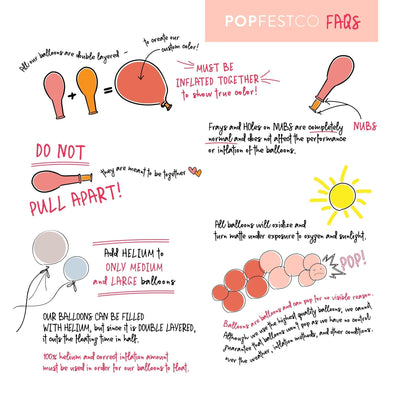 POPFESTCO FAQS
All our balloons are double layered
to create our
custom color!
MUST BE
INFLATED TOGETHER
to show true color!
NUBS
Frays and HOles on NUBS are completely
normal and does not affect the performance
or inflation of the balloons.
DO NOT
they are meant to be together
PULL APART!
All balloons will oxidize and
turn matte under exposure to oxygen and sunlight.
Add HELIUM to
ONLY MEDIUM
and LARGE balloons
POP!
OUR BALLOONS CAN BE FILLED
WITH HELIUM, but since it is DOUBLE LAYERED,
it cuts the floating time in half.
100% helium and correct inflation amount
must be used in order for our balloons to float.
Balloons are balloons and can pop for no visible reason.
Although we use the highest quality balloons, we cannot
guarantee that balloons won't pop as we have no control
over the weather, inflation methods, and other conditions.